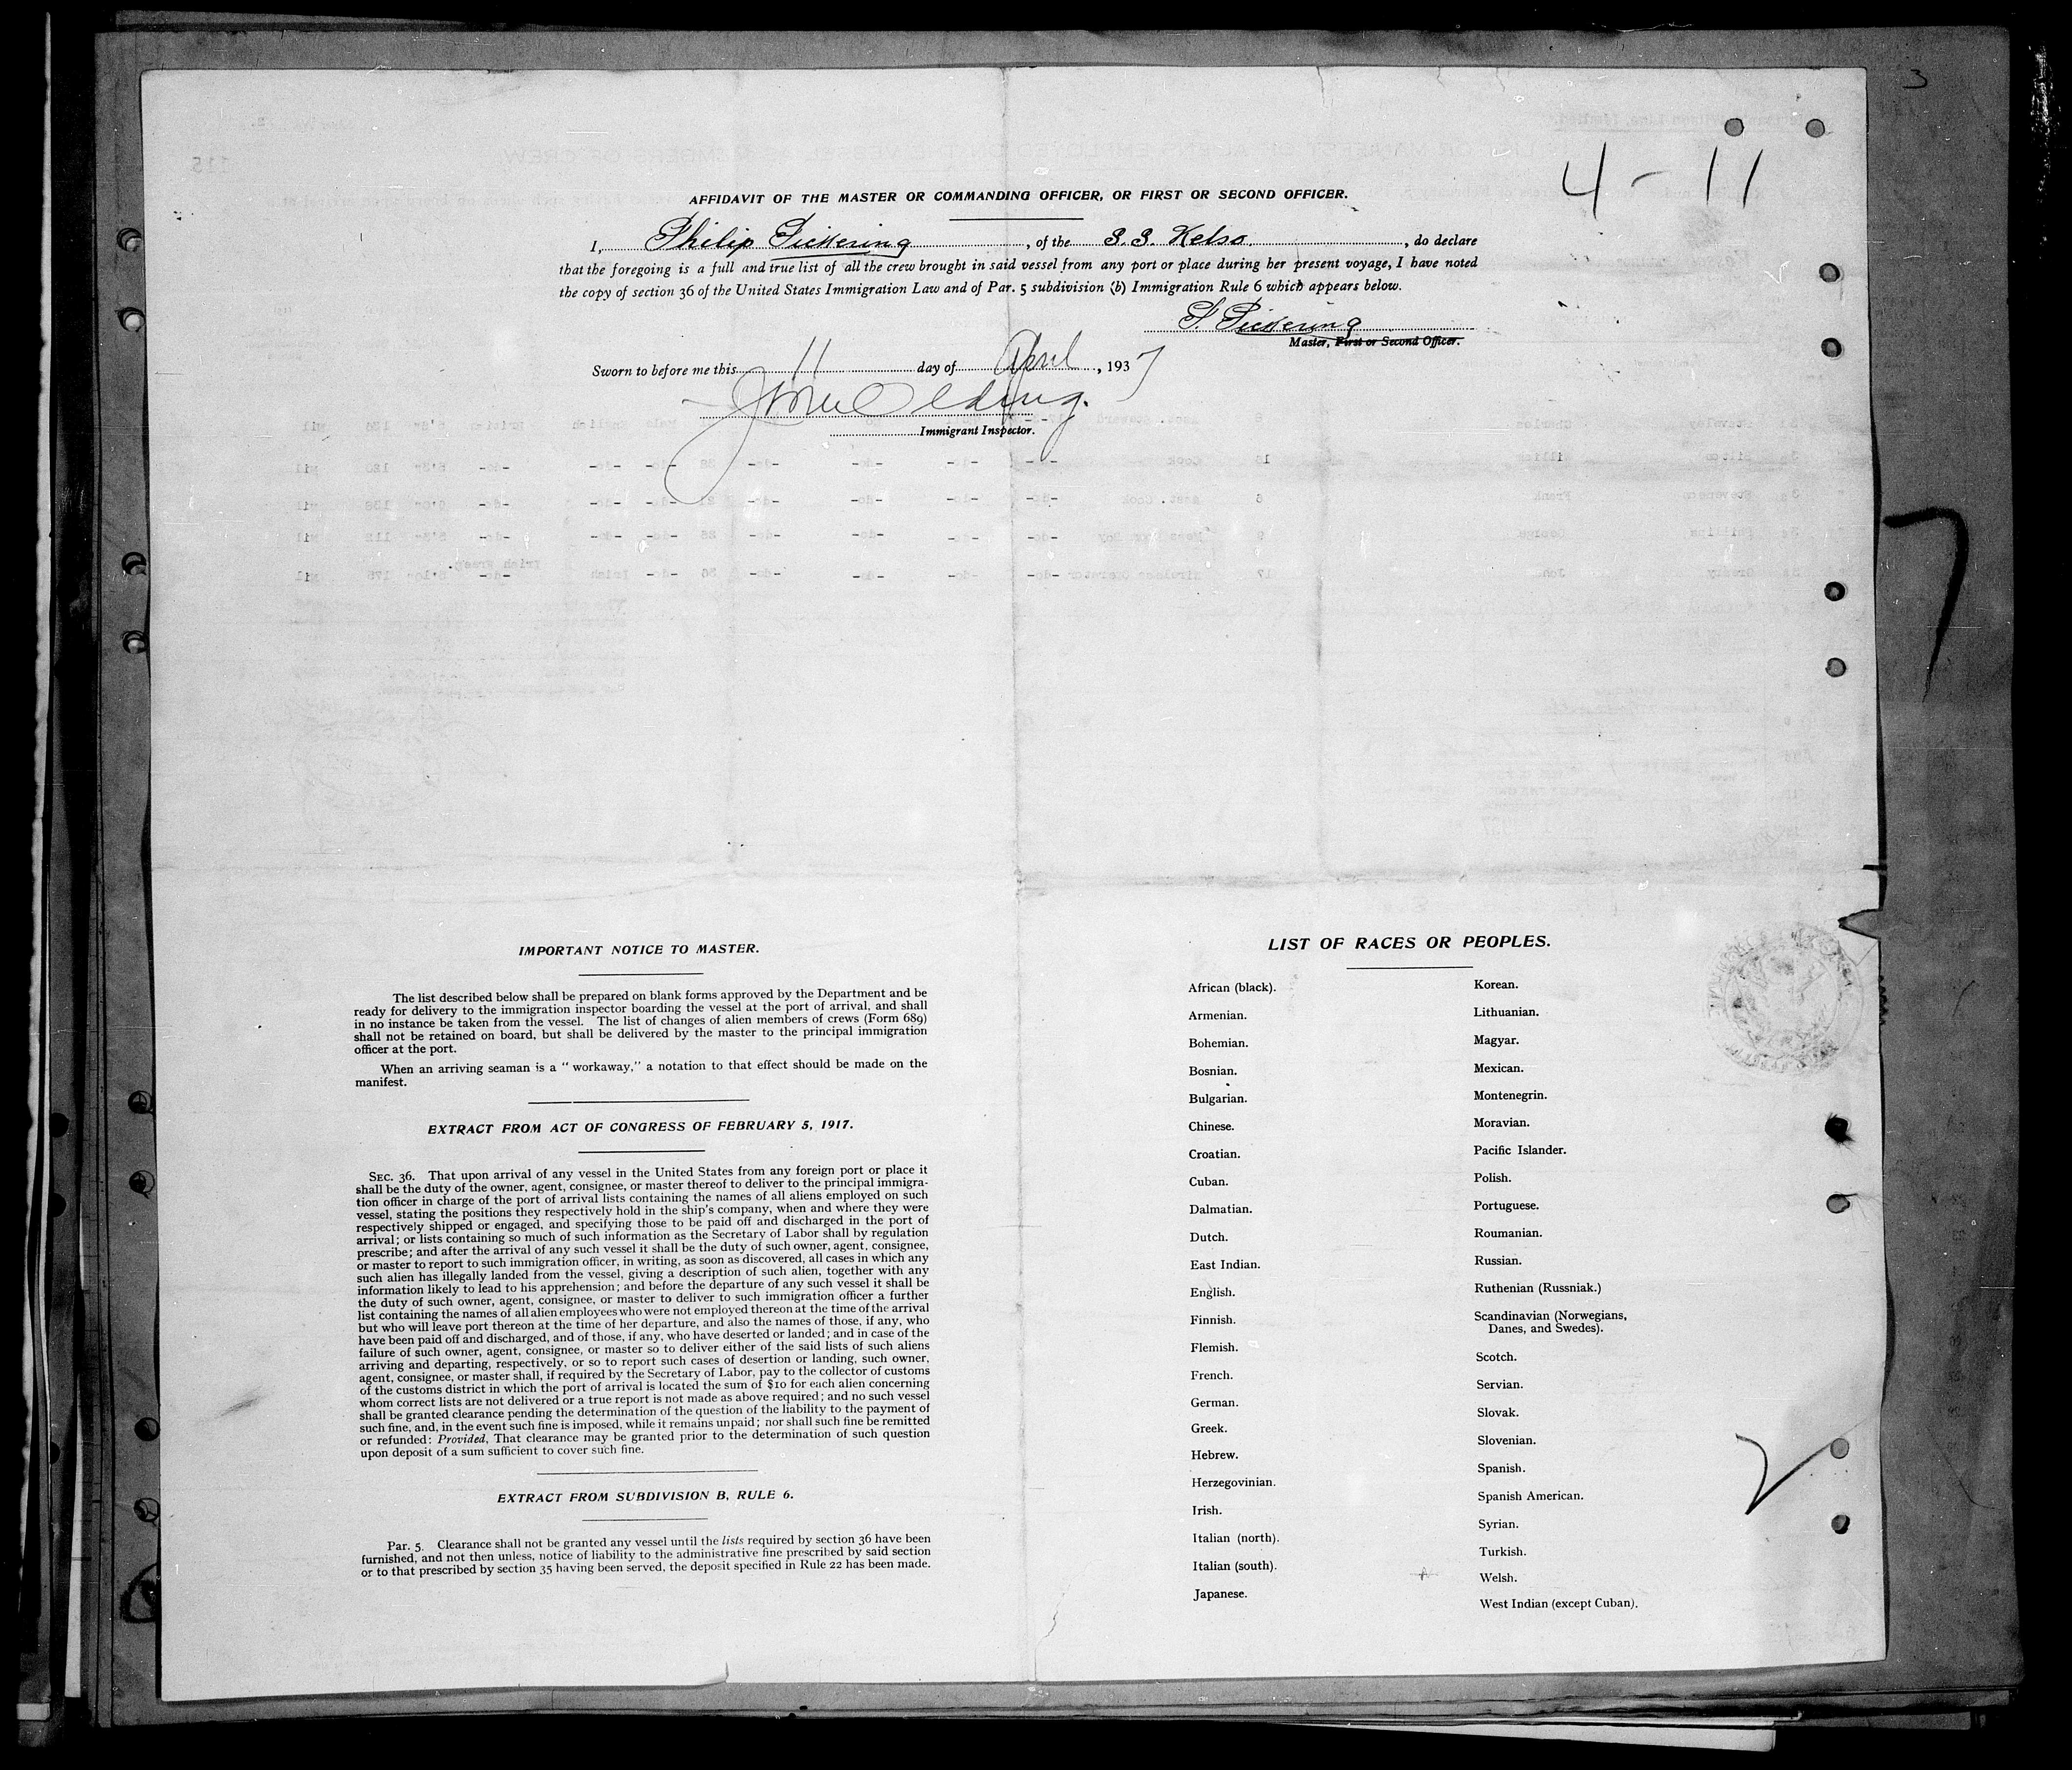 3
4-11
AFFIDAVIT OF THE MASTER OR COMMANDING OFFICER, OR FIRST OR SECOND OFFICER.
I, Philip Pickering, of the S.S. Kelso, do declare
that the foregoing is a full and true list of all the crew brought in said vessel from any port or place during her present voyage, I have noted
the copy of section 36 of the United States Immigration Law and of Par. 5 subdivision (b) Immigration Rule 6 which appears below.
P. Pickering
Master, First or Second Officer.
Sworn to before me this 11 day of April, 1937
Immigrant Inspector.
7
IMPORTANT NOTICE TO MASTER.
The list described below shall be prepared on blank forms approved by the Department and be
ready for delivery to the immigration inspector boarding the vessel at the port of arrival, and shall
in no instance be taken from the vessel. The list of changes of alien members of crews (Form 689)
shall not be retained on board, but shall be delivered by the master to the principal immigration
officer at the port.
When an arriving seaman is a "workaway," a notation to that effect should be made on the
manifest.
EXTRACT FROM ACT OF CONGRESS OF FEBRUARY 5, 1917.
SEC. 36. That upon arrival of any vessel in the United States from any foreign port or place it
shall be the duty of the owner, agent, consignee, or master thereof to deliver to the principal immigra-
tion officer in charge of the port of arrival lists containing the names of all aliens employed on such
vessel, stating the positions they respectively hold in the ship's company, when and where they were
respectively shipped or engaged, and specifying those to be paid off and discharged in the port of
arrival; or lists containing so much of such information as the Secretary of Labor shall by regulation
prescribe; and after the arrival of any such vessel it shall be the duty of such owner, agent, consignee,
or master to report to such immigration officer, in writing, as soon as discovered, all cases in which any
such alien has illegally landed from the vessel, giving a description of such alien, together with any
information likely to lead to his apprehension; and before the departure of any such vessel it shall be
the duty of such owner, agent, consignee, or master to deliver to such immigration officer a further
list containing the names of all alien employees who were not employed thereon at the time of the arrival
but who will leave port thereon at the time of her departure, and also the names of those, if any, who
have been paid off and discharged, and of those, if any, who have deserted or landed; and in case of the
failure of such owner, agent, consignee, or master so to deliver either of the said lists of such aliens
arriving and departing, respectively, or so to report such cases of desertion or landing, such owner,
agent, consignee, or master shall, if required by the Secretary of Labor, pay to the collector of customs
of the customs district in which the port of arrival is located the sum of $10 for each alien concerning
whom correct lists are not delivered or a true report is not made as above required; and no such vessel
shall be granted clearance pending the determination of the question of the liability to the payment of
such fine, and, in the event such fine is imposed, while it remains unpaid; nor shall such fine be remitted
or refunded: Provided, That clearance may be granted prior to the determination of such question
upon deposit of a sum sufficient to cover such fine.
EXTRACT FROM SUBDIVISION B, RULE 6.
Par. 5. Clearance shall not be granted any vessel until the lists required by section 36 have been
furnished, and not then unless, notice of liability to the administrative fine prescribed by said section
or to that prescribed by section 35 having been served, the deposit specified in Rule 22 has been made.
LIST OF RACES OR PEOPLES.
African (black).
Armenian.
Bohemian.
Bosnian.
Bulgarian.
Chinese.
Croatian.
Cuban.
Dalmatian.
Dutch.
East Indian.
English.
Finnish.
Flemish.
French.
German.
Greek.
Hebrew.
Herzegovinian.
Irish.
Italian (north).
Italian (south).
Japanese.
Korean.
Lithuanian.
Magyar.
Mexican.
Montenegrin.
Moravian.
Pacific Islander.
Polish.
Portuguese.
Roumanian.
Russian.
Ruthenian (Russniak.)
Scandinavian (Norwegians,
Danes, and Swedes).
Scotch.
Servian.
Slovak.
Slovenian.
Spanish.
Spanish American.
Syrian.
Turkish.
Welsh.
West Indian (except Cuban).